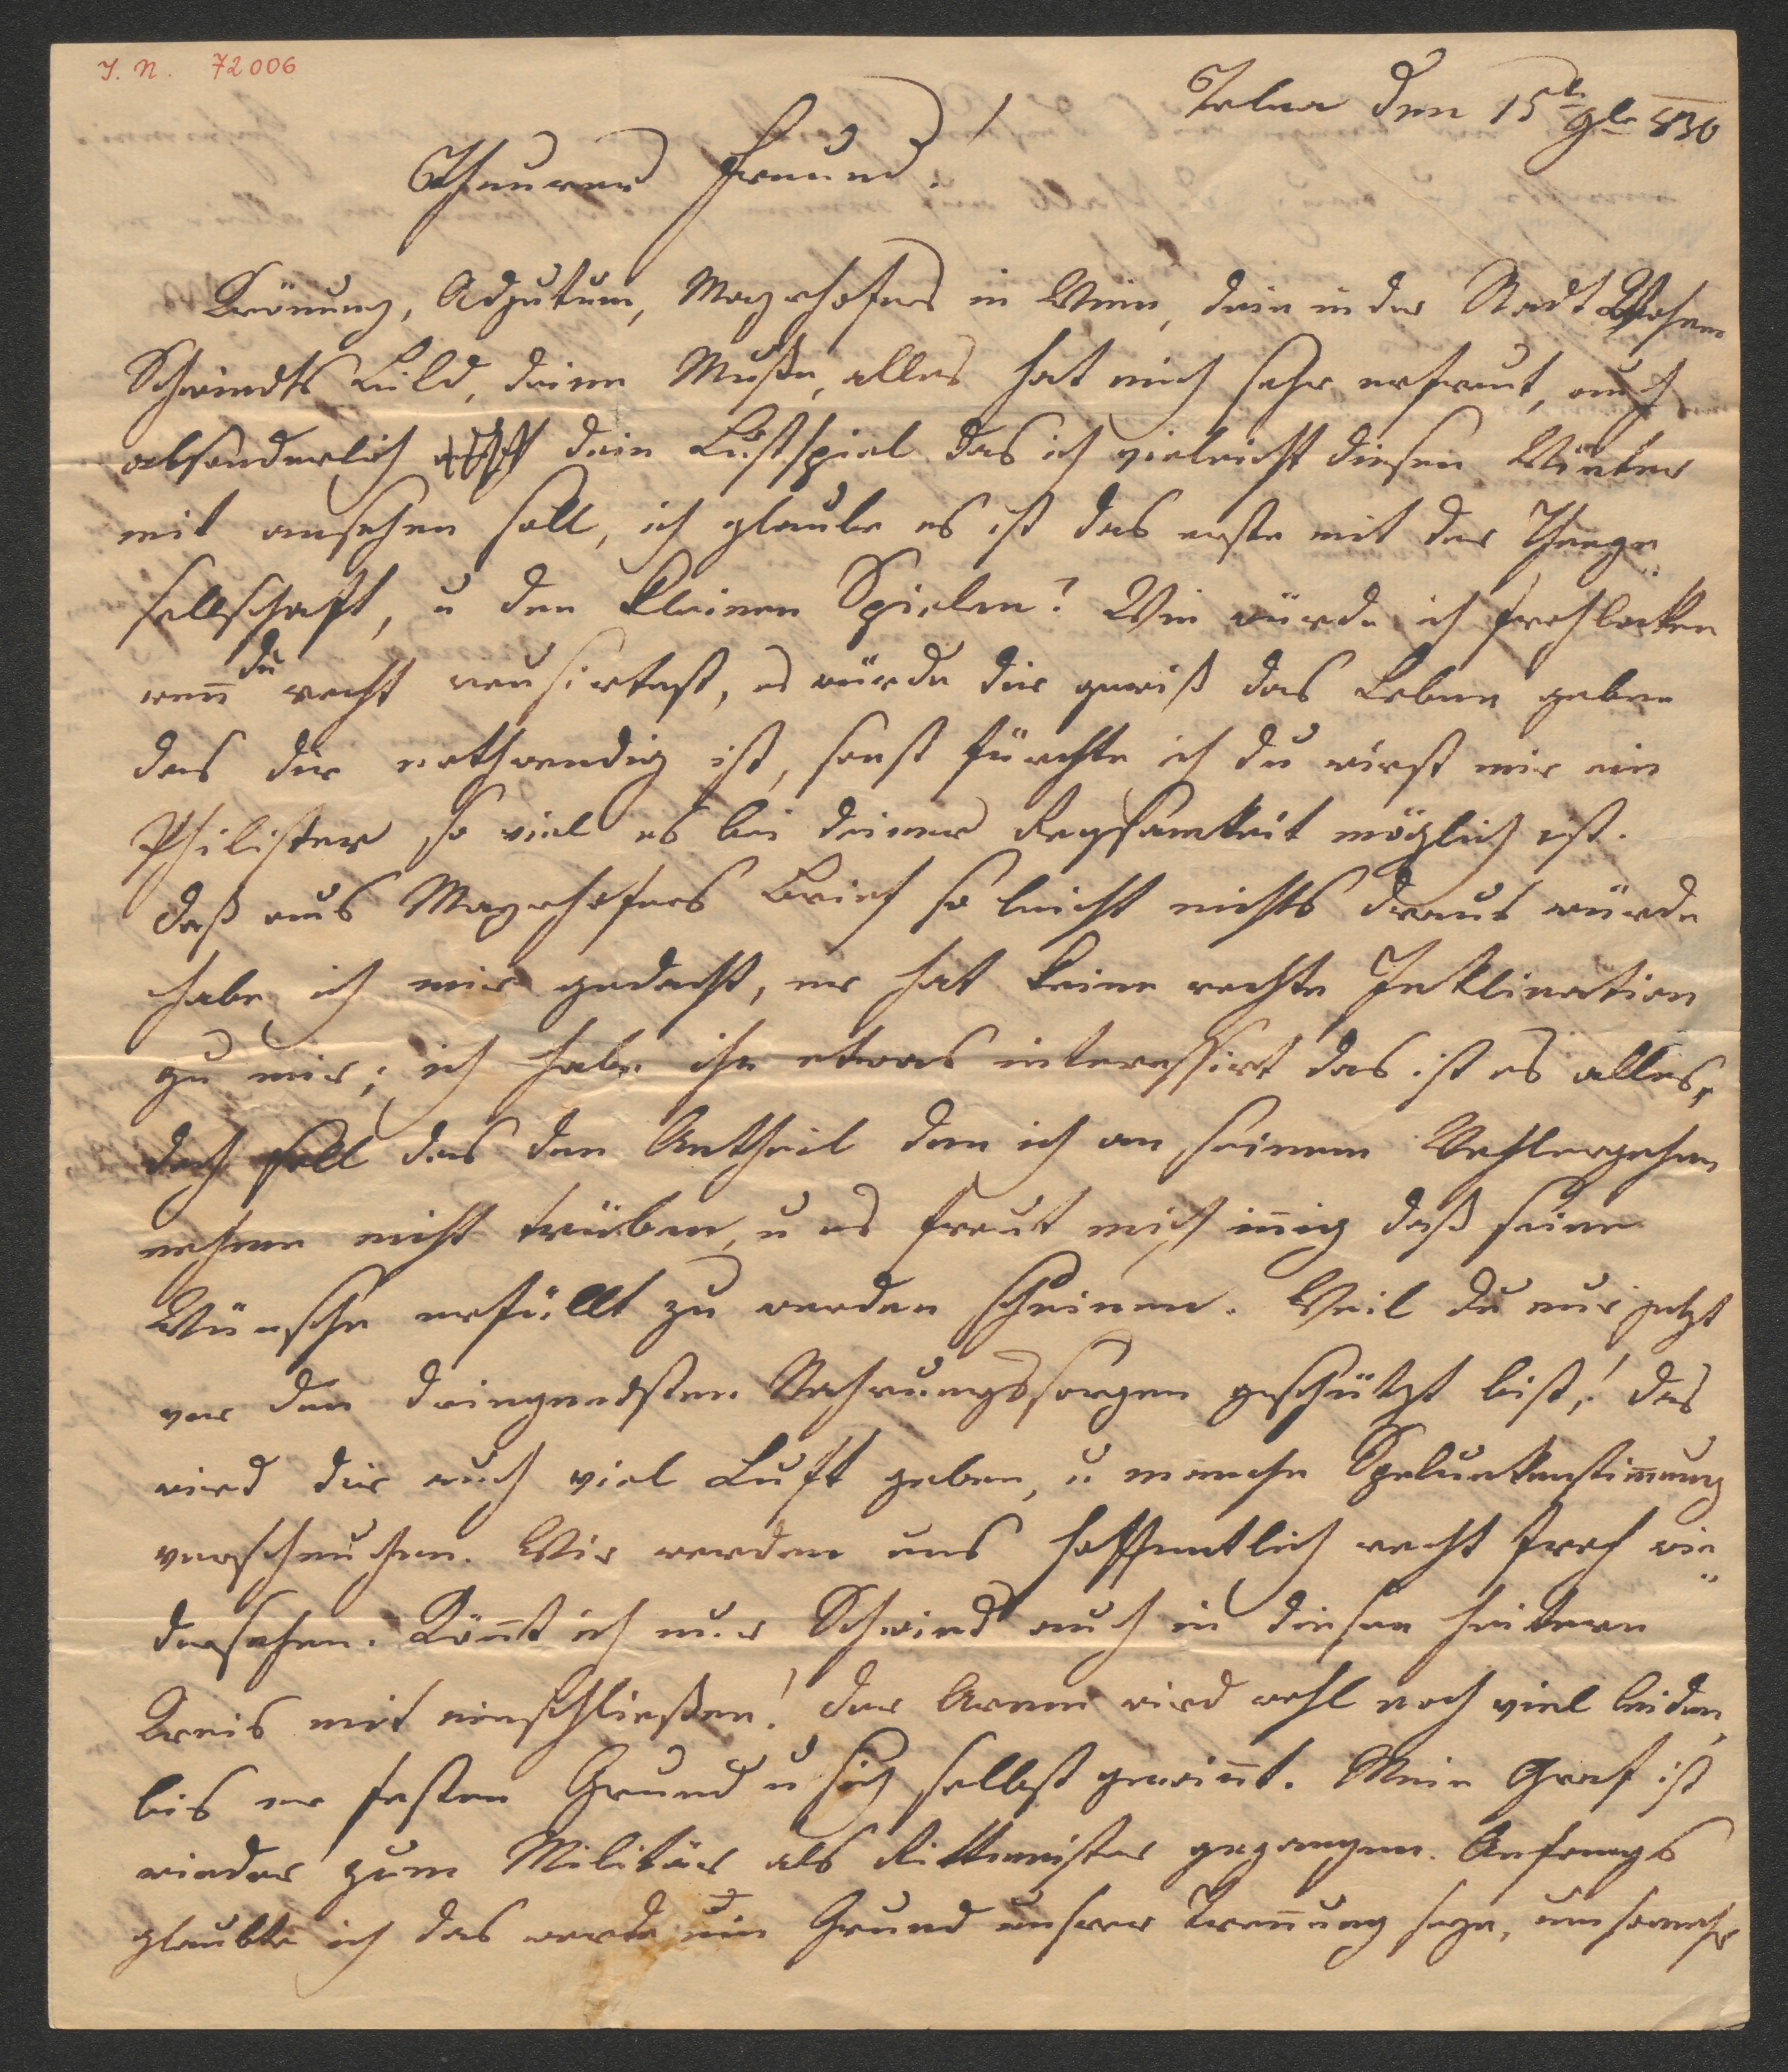 I. N. 72006
Tolna den 15t 9br 830
Theurer Freund!
Krönung, Adjutum, Mayrhofers in Wien, dein in der Stadt Wohnen
Schwindts Bild, deine Muße, alles hat mich sehr erfreut, auch
absonderlich dein Lustspiel das ich vieleicht diesen Winter
mit ansehen soll, ich glaube es ist das erste mit der Theege„
sellschaft, u den kleinen Spielen? Wie würde ich frohlocken
wen̄ du recht reusirtest, es würde dir gewiß das Leben geben
das dir nothwendig ist, sonst fürchte ich du wirst mir ein
Philister so viel es bei deiner Regsamkeit möglich ist.
Daß aus Mayrhofers Brief so leicht nichts draus würde
habe ich mir gedacht, er hat keine rechte Inklination
zu mir; ich habe ihn etwas interessirt das ist es alles,
doch soll das den Antheil den ich an seinem Wohlergehen
nehme nicht trüben, u es freut mich in̄ig daß seine
Wünsche erfüllt zu werden scheinen. Weil du nur jetzt
vor den dringendsten Nahrungssorgen geschützt bist,! das
wird dir auch viel Luft geben, u manche Spelunkenstim̄ung
verscheuchen. Wir werden uns hoffentlich recht froh wie„
dersehen. Kön̄t ich nur Schwind auch in diesen heitern
Kreis mit einschließen! Der Arme wird wohl noch viel leiden,
bis er festen Grund u sich selbst gewin̄t. Mein Graf ist
wieder zum Militär als Rittmeister gegangen. Anfangs
glaubte ich das werde ein Grund unsrer Tren̄ung seyn, umsomehr